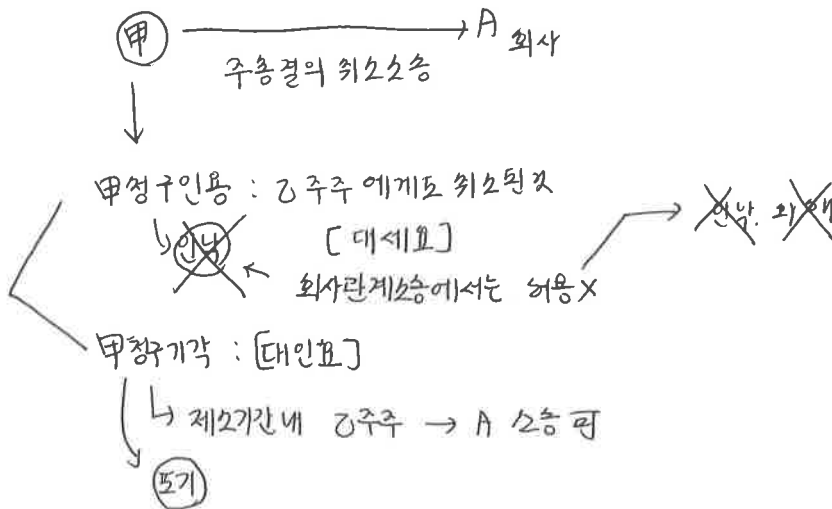 甲 → A 회사
주총결의 취소소송
甲청구인용 : 乙주주에게도 취소된것
인낙 [대세효]
인낙. 화해
회사관계소송에서는 허용X
甲청구기각 : [대인효]
제소기간내 乙주주 → A 소송 可
포기